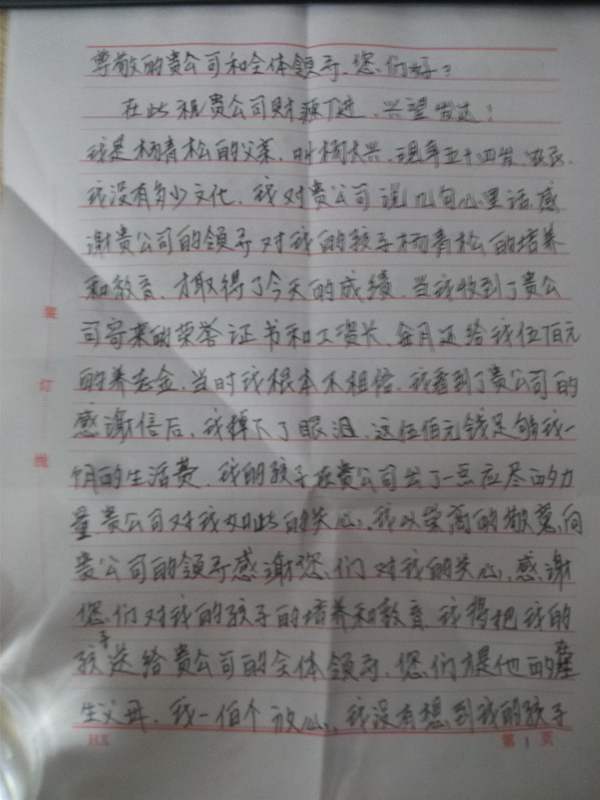 尊敬的贵公司和全体领导、您们好？
在此祝贵公司财源广进、兴望发达！
我是杨青松的父亲、叫杨大兴、现年五十四岁、农民、
我没有多少文化、我对贵公司说几句心里话、感
谢贵公司的领导对我的孩子杨青松的培养
和教育、才取得了今天的成绩、当我收到了贵公
司寄来的荣誉证书和工资长、每月还给我伍佰元
的养老金、当时我根本不相信、我看到了贵公司的
感谢信后、我掉下了眼泪、这伍佰元钱足够我一
个月的生活费、我的孩子在贵公司出了一点应尽的力
量贵公司对我如此的关心、我以崇高的敬意、向
贵公司的领导感谢您们对我的关心、感谢
您们对我的孩子的培养和教育、我将把我的
孩子送给贵公司的全体领导、您们才是他的
生父母、我一佰个放心、我没有想到我的孩子
装
订
线
第 1 页